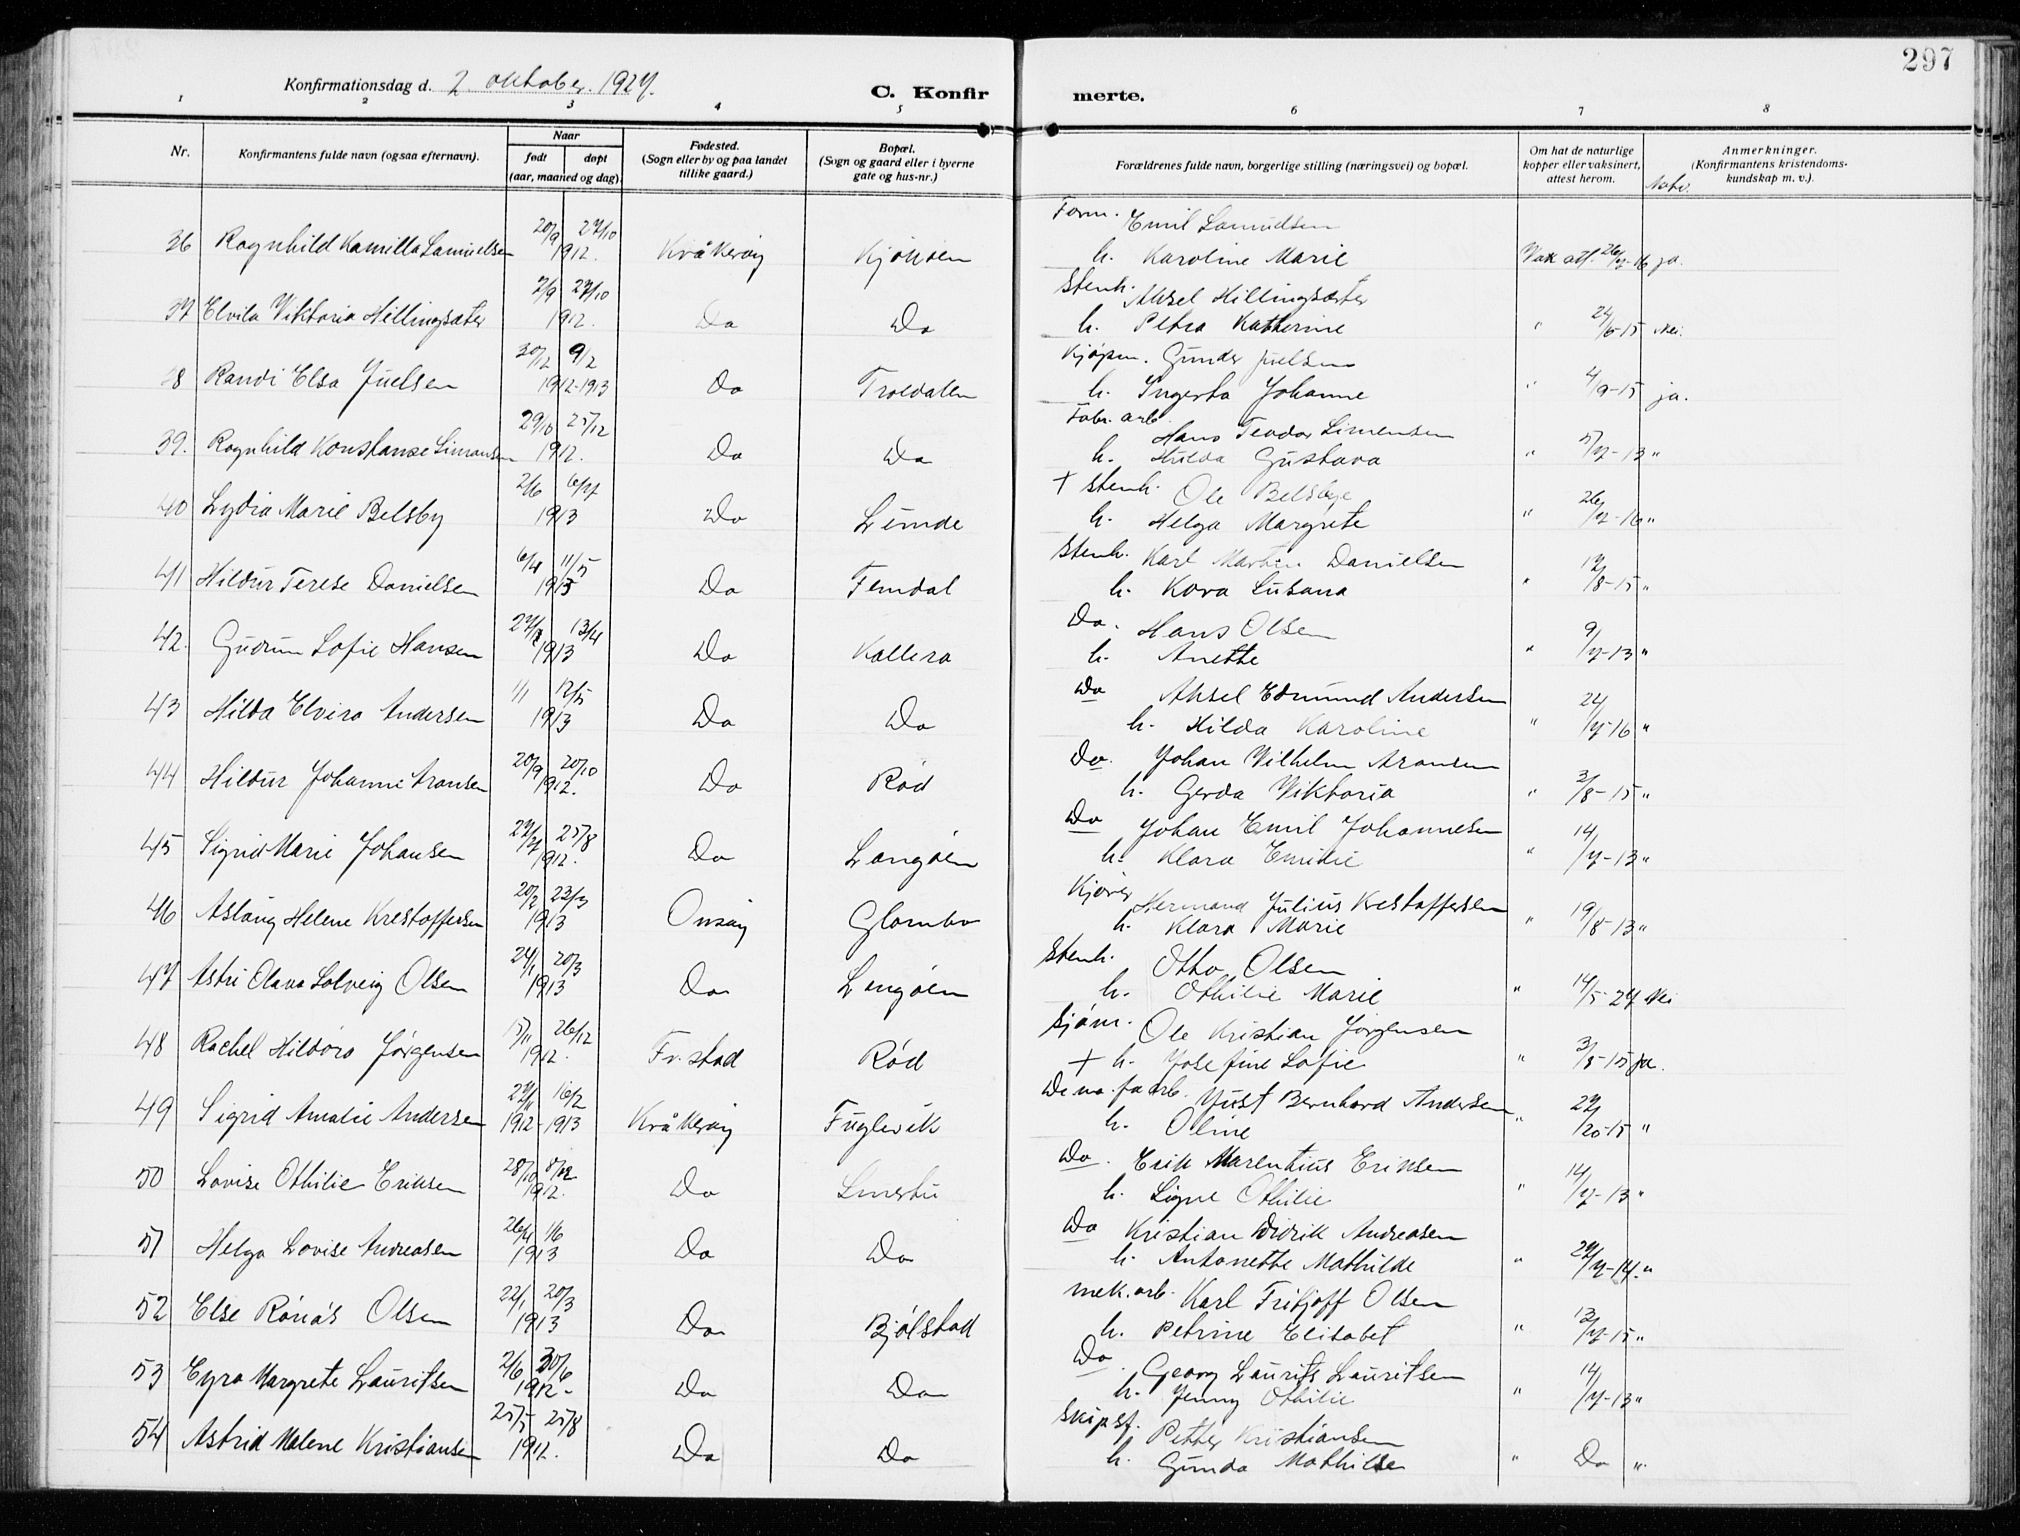 297
Konfirmationsdag d. 2. oktober. 1927.
C. Konfirmerte.
1 2 3 4 5 6 7 8
Nr.
Konfirmantens fulde navn (ogsaa efternavn).
Naar
født
døpt
(aar, maaned og dag).
Fødested.
(Sogn eller by og paa landet
tillike gaard.)
Bopæl.
(Sogn og gaard eller i byerne
gate og hus-nr.)
Forældrenes fulde navn, borgerlige stilling (næringsvei) og bopæl.
Om hat de naturlige
kopper eller vaksinert,
attest herom.
Anmerkninger.
(Konfirmantens kristendoms-
kundskap m. v.).
36 Ragnhild Kamilla Samuelsen 20/9 27/10 1912. Kråkerøy Kjøkøen Form. Emil Samuelsen
h. Karoline Marie Vak att. 26/7-16 ja.
37 Elvila Viktoria Hillingsæter 2/9 27/10 1912. Do Do Stenh. Aksel Hillingsæter
h. Petra Katherine " 24/6-15 Nei.
38 Randi Elsa Juelsen 30/12 9/2 1912-1913 Do Troldalen Kjøpm. Gunder Juelsen
h. Ingerta Johanne " 4/9-15 ja.
39. Ragnhild Konstanse Simonsen 29/10 25/12 1912. Do Do Fabr. arb. Hans Teodor Simensen
h. Hulda Gustava " 5/7-13 "
40 Lydia Marie Belsby 2/6 1913 Do Lunde + Stenh. Ole Belsbye
h. Helga Margrete " 26/7-16 "
41 Hildur Terese Danielsen 6/4 11/5 1913 Do Femdal Stenh. Karl Martin Danielsen
h. Kora Susana " 12/8-15 "
42. Gudrun Sofie Hansen 13/4 1913 Do Kallera Do. Hans Olsen
h. Anette " 9/7-13 "
43 Hilda Elvira Andersen 1/1 12/5 1913 Do Do Do Aksel Edmund Andersen
h. Hilda Karoline " 24/7-16 "
44 Hildur Johanne Aronsen 20/9 20/10 1912. Do Rød Do. Johan Vilhelm Aronsen
h. Gerda Viktoria " 3/8-15 "
45 Sigrid Marie Johansen 27/7 25/8 1912. Do Langøen Do Johan Emil Johannesen
h. Klara Emilie " 14/7-13 "
46 Aslaug Helene Krestoffersen 20/2 23/3 1913 Onsøy Glombo Kjører Hermand Julius Krestoffersen
h. Klara Marie " 19/8-13 "
47 Astri Olava Solveig Olsen 24/1 20/3 1913 Do Langøen Stenh. Otto Olsen
h. Othilie Marie " 14/5-27 Nei
48 Rachel Hildora Jørgensen 15/11 26/12 1912. Fr.stad Rød Sjøm. Ole Kristian Jørgensen
+ h. Josefine Sofie " 3/8-15 ja.
49 Sigrid Amalie Andersen 27/11 16/2 1912-1913 Kråkerøy Fuglevik Just Bernhard Andersen
h. Oline " "
50 Lovise Othilie Eriksen 28/10 8/12 1912. Do Smertu Do. Erik Marentius Eriksen
h. Signe Othilie " 14/7-13 "
51 Helga Lovise Andreasen 26/4 1/6 1913 Do Do Do Kristian Didrik Andreasen
h. Antonette Mathilde " 29/7-14. "
52 Else Rønås Olsen 22/1 20/3 1913 Do Bjølstad mek. arb. Karl Fritjoff Olsen
h. Petrine Elisabet " 13/7-15 "
53 Eyra Margrete Lauritsen 2/6 30/6 1912- Do Do Do. Georg Laurits Lauritsen
h. Jenny Othilie " 14/7-13 "
54 Astrid Malene Kristiansen 25/5 25/8 1912. Do Do Skipsf. Petter Kristiansen
h. Gunda Mathilde " Do "